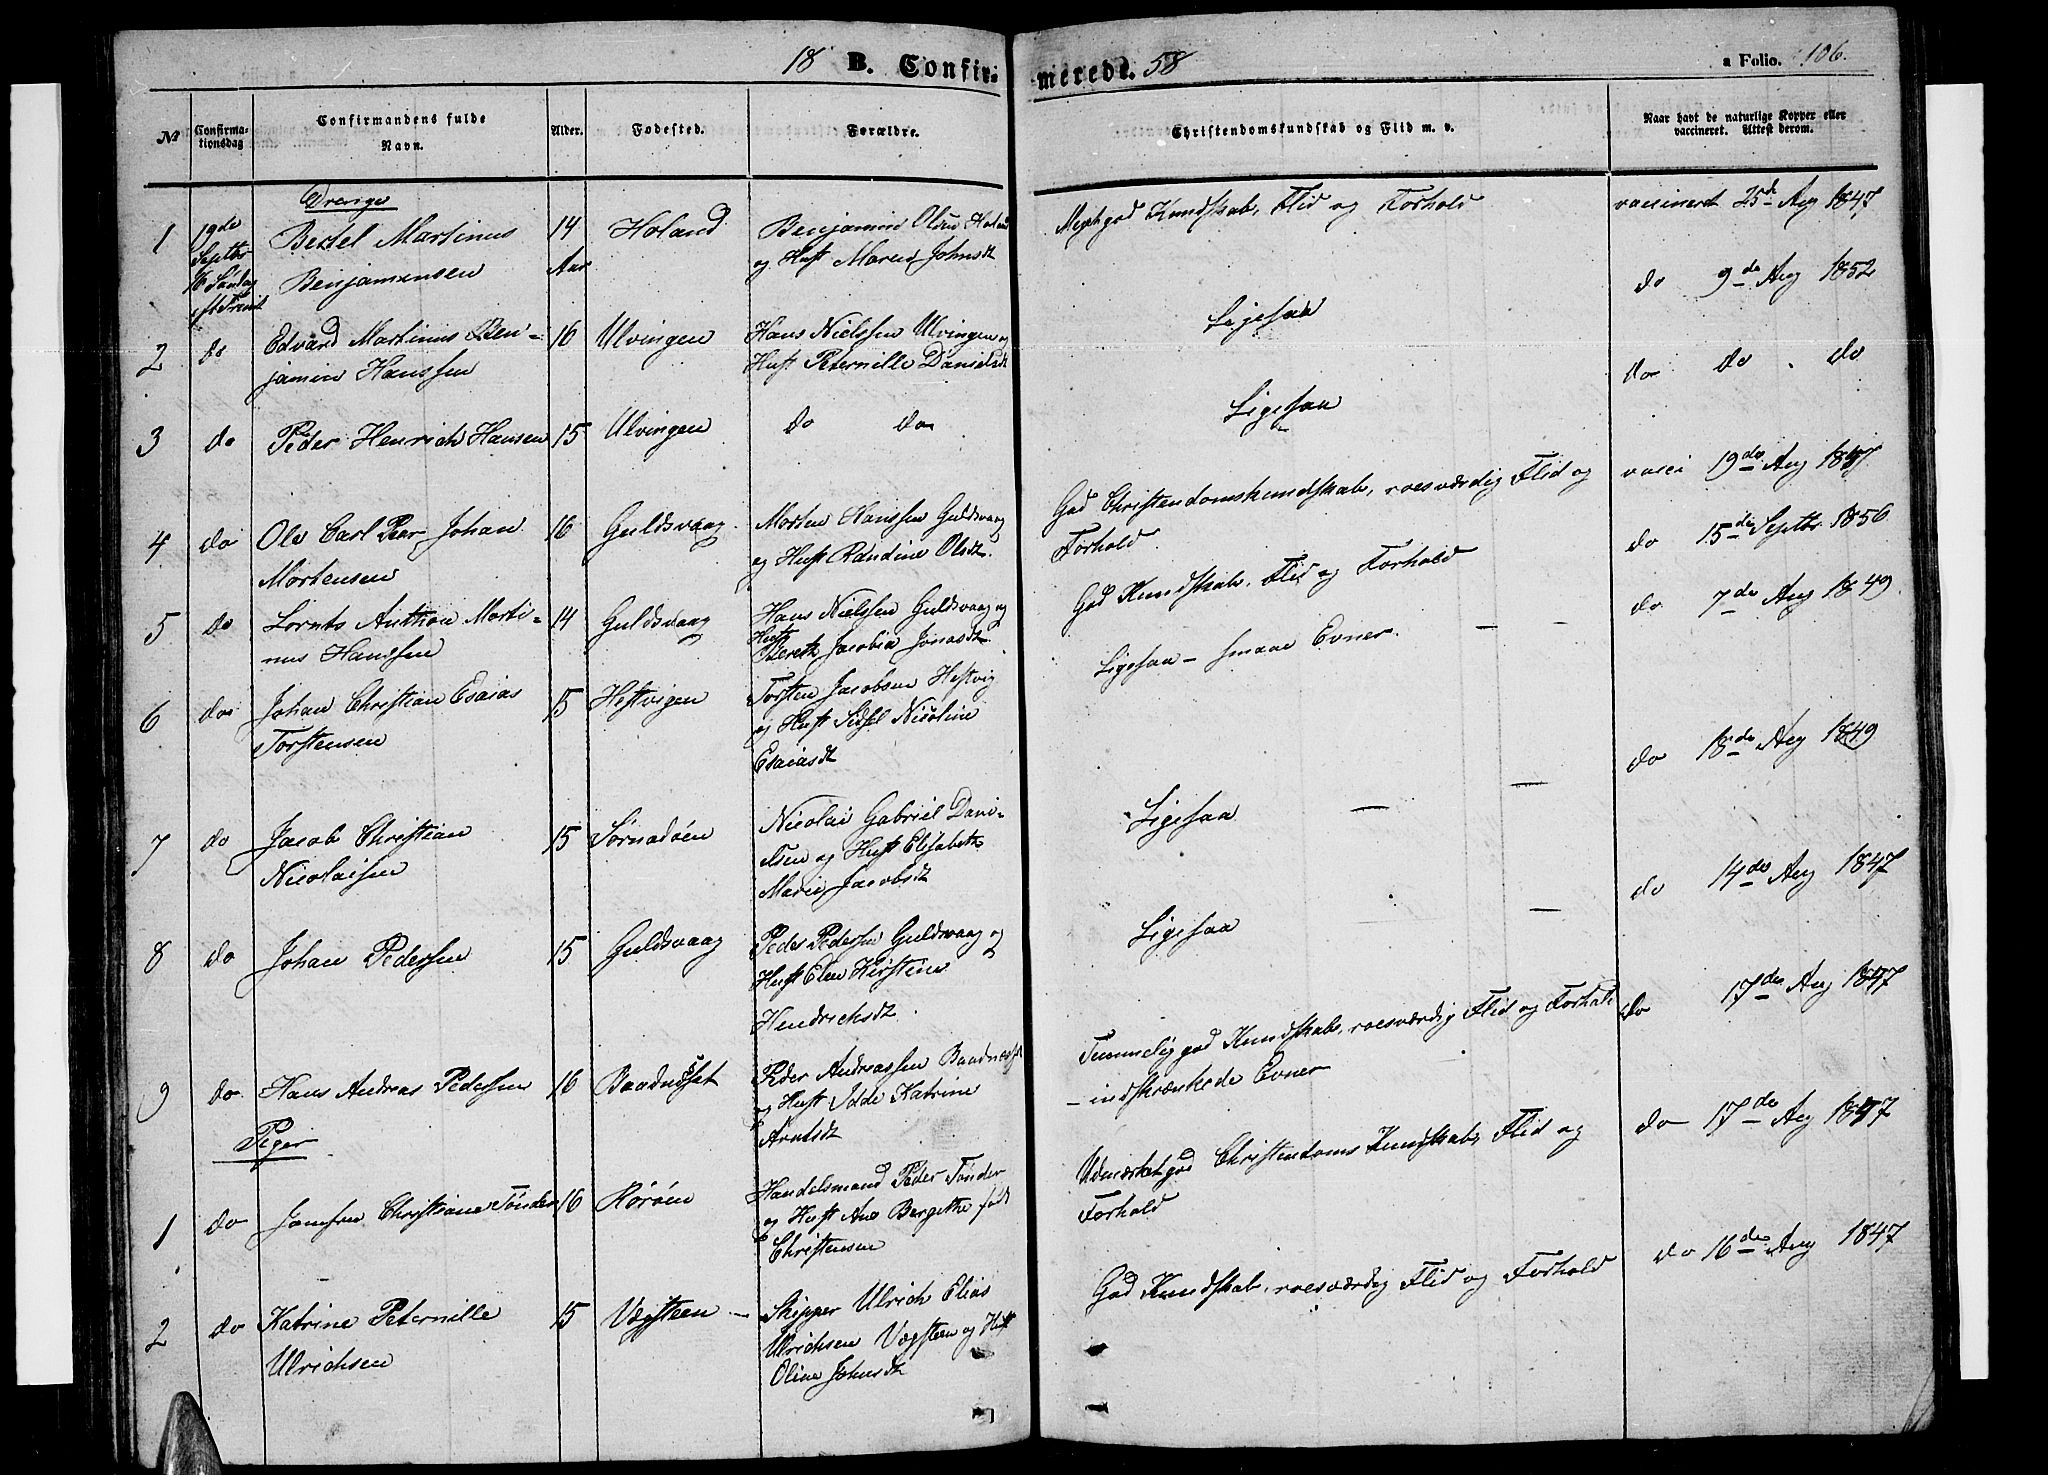 18 B. Confir-
merede. 58
a Folio. 106.
No
Confirma-
tionsdag
Confirmandens fulde
Navn.
Alder.
Fødested.
Forældre.
Christendomskundskab og Flid m. v.
Naar havt de naturlige Kopper eller
vaccineret. Attest derom.
Drenge
1 19de Septbr 16 Søndag eft Trinit
Bertel Martinus
Benjaminsen
14 Aar
Holand
Benjamin Olsen Holand
og Hust Maren Johnsdt
Meget god Kundskab, Flid og Forhold
vaccineret 25de Aug 1847
2 do
Edvard Martinus Ben-
jamin Hanssen
16 Ulvingen
Hans Nielssen Ulvingen og
Hust Peternille Danielsdt
Ligesaa
do 9de Aug 1852
3 do Peder Henrich Hansen 15 Ulvingen do do
Ligesaa
do do do
4 do
Ole Carl Peder Johan
Mortensen
16 Guldsvaag
Morten Hanssen Guldsvaag
og Hust Randine Olsdt.
God Christendomskundskab, roesværdig Flid og
Forhold.
vacci 19de Aug 1847
5 do
Lornts Anthon Marti-
nus Hanssen
14 Guldsvaag
Hans Nielssen Guldsvaag og
Hust
Bereth Jacobia Jonasdt
God Kundskab, Flid og Forhold
do 15de Septbr. 1856
6 do
Johan Christian Esaias
Torstensen
15 Hestvigen
Torsten Jacobsen Hestvig
og Hust Sidsel Nicoline
Esaiasdt
Ligesaa – smaae Evner. – –
do 7de Aug 1849.
7 do
Jacob Christian
Nicolaisen
15 Sørnadøen
Nicolai Gabriel Dani-
elsen og Hust Elisabeth
Marie Jacobsdt
Ligesaa – –
do 18de Aug 1849
8 do Johan Pedersen 15 Guldsvaag
Peder Pedersen Guldsvaag og
Hust Elen Kirstine
Hendrichsdt.
Ligesaa – –
do 14de Aug 1847
9 do Hans Andreas Pedersen 16 Baadnæsset
Peder Andreassen Baadnæsset
og Hust Idde Katrine
Arntsdt
Temmelig god Kundskab, roesværdig Flid og Forhold
– indskrænkede Evner
do 17de Aug 1847
Piger
1 do Jomfru Christiane Tønder 16 Rørøen
Handelsmand Peder Tønder
og Hust Ane Bergethe født
Christensen
Udmærket god Christendoms Kundskab, Flid og
Forhold
do 17de Aug 1847
2 do
Katrine Peternille
Ulrichsen
15 Vægsteen –
Skipper Ulrich Elias
Ulrichsen Vægsteen og Hust
Oline Johnsdt
God Kundskab, roesværdig Flid og Forhold
do 16de Aug 1847